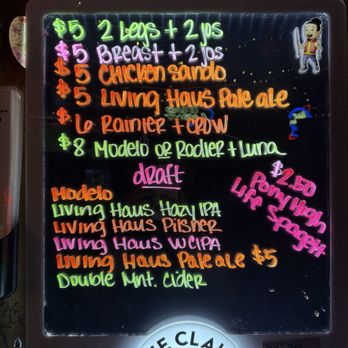 $5 2 Legs + 2 jos
$5 Breast + 2 jos
$5 Chicken Sando
$5 Living Haus Pale ale
$6 Rainier + Crow
$8 Modelo or Radler + Luna
draft
$2.50
Pony High
Life Spagett
Modelo
Living Haus Hazy IPA
Living Haus Pilsner
Living Haus WCIPA
Living Haus Pale ale $5
Double Mnt. Cider
E CLA